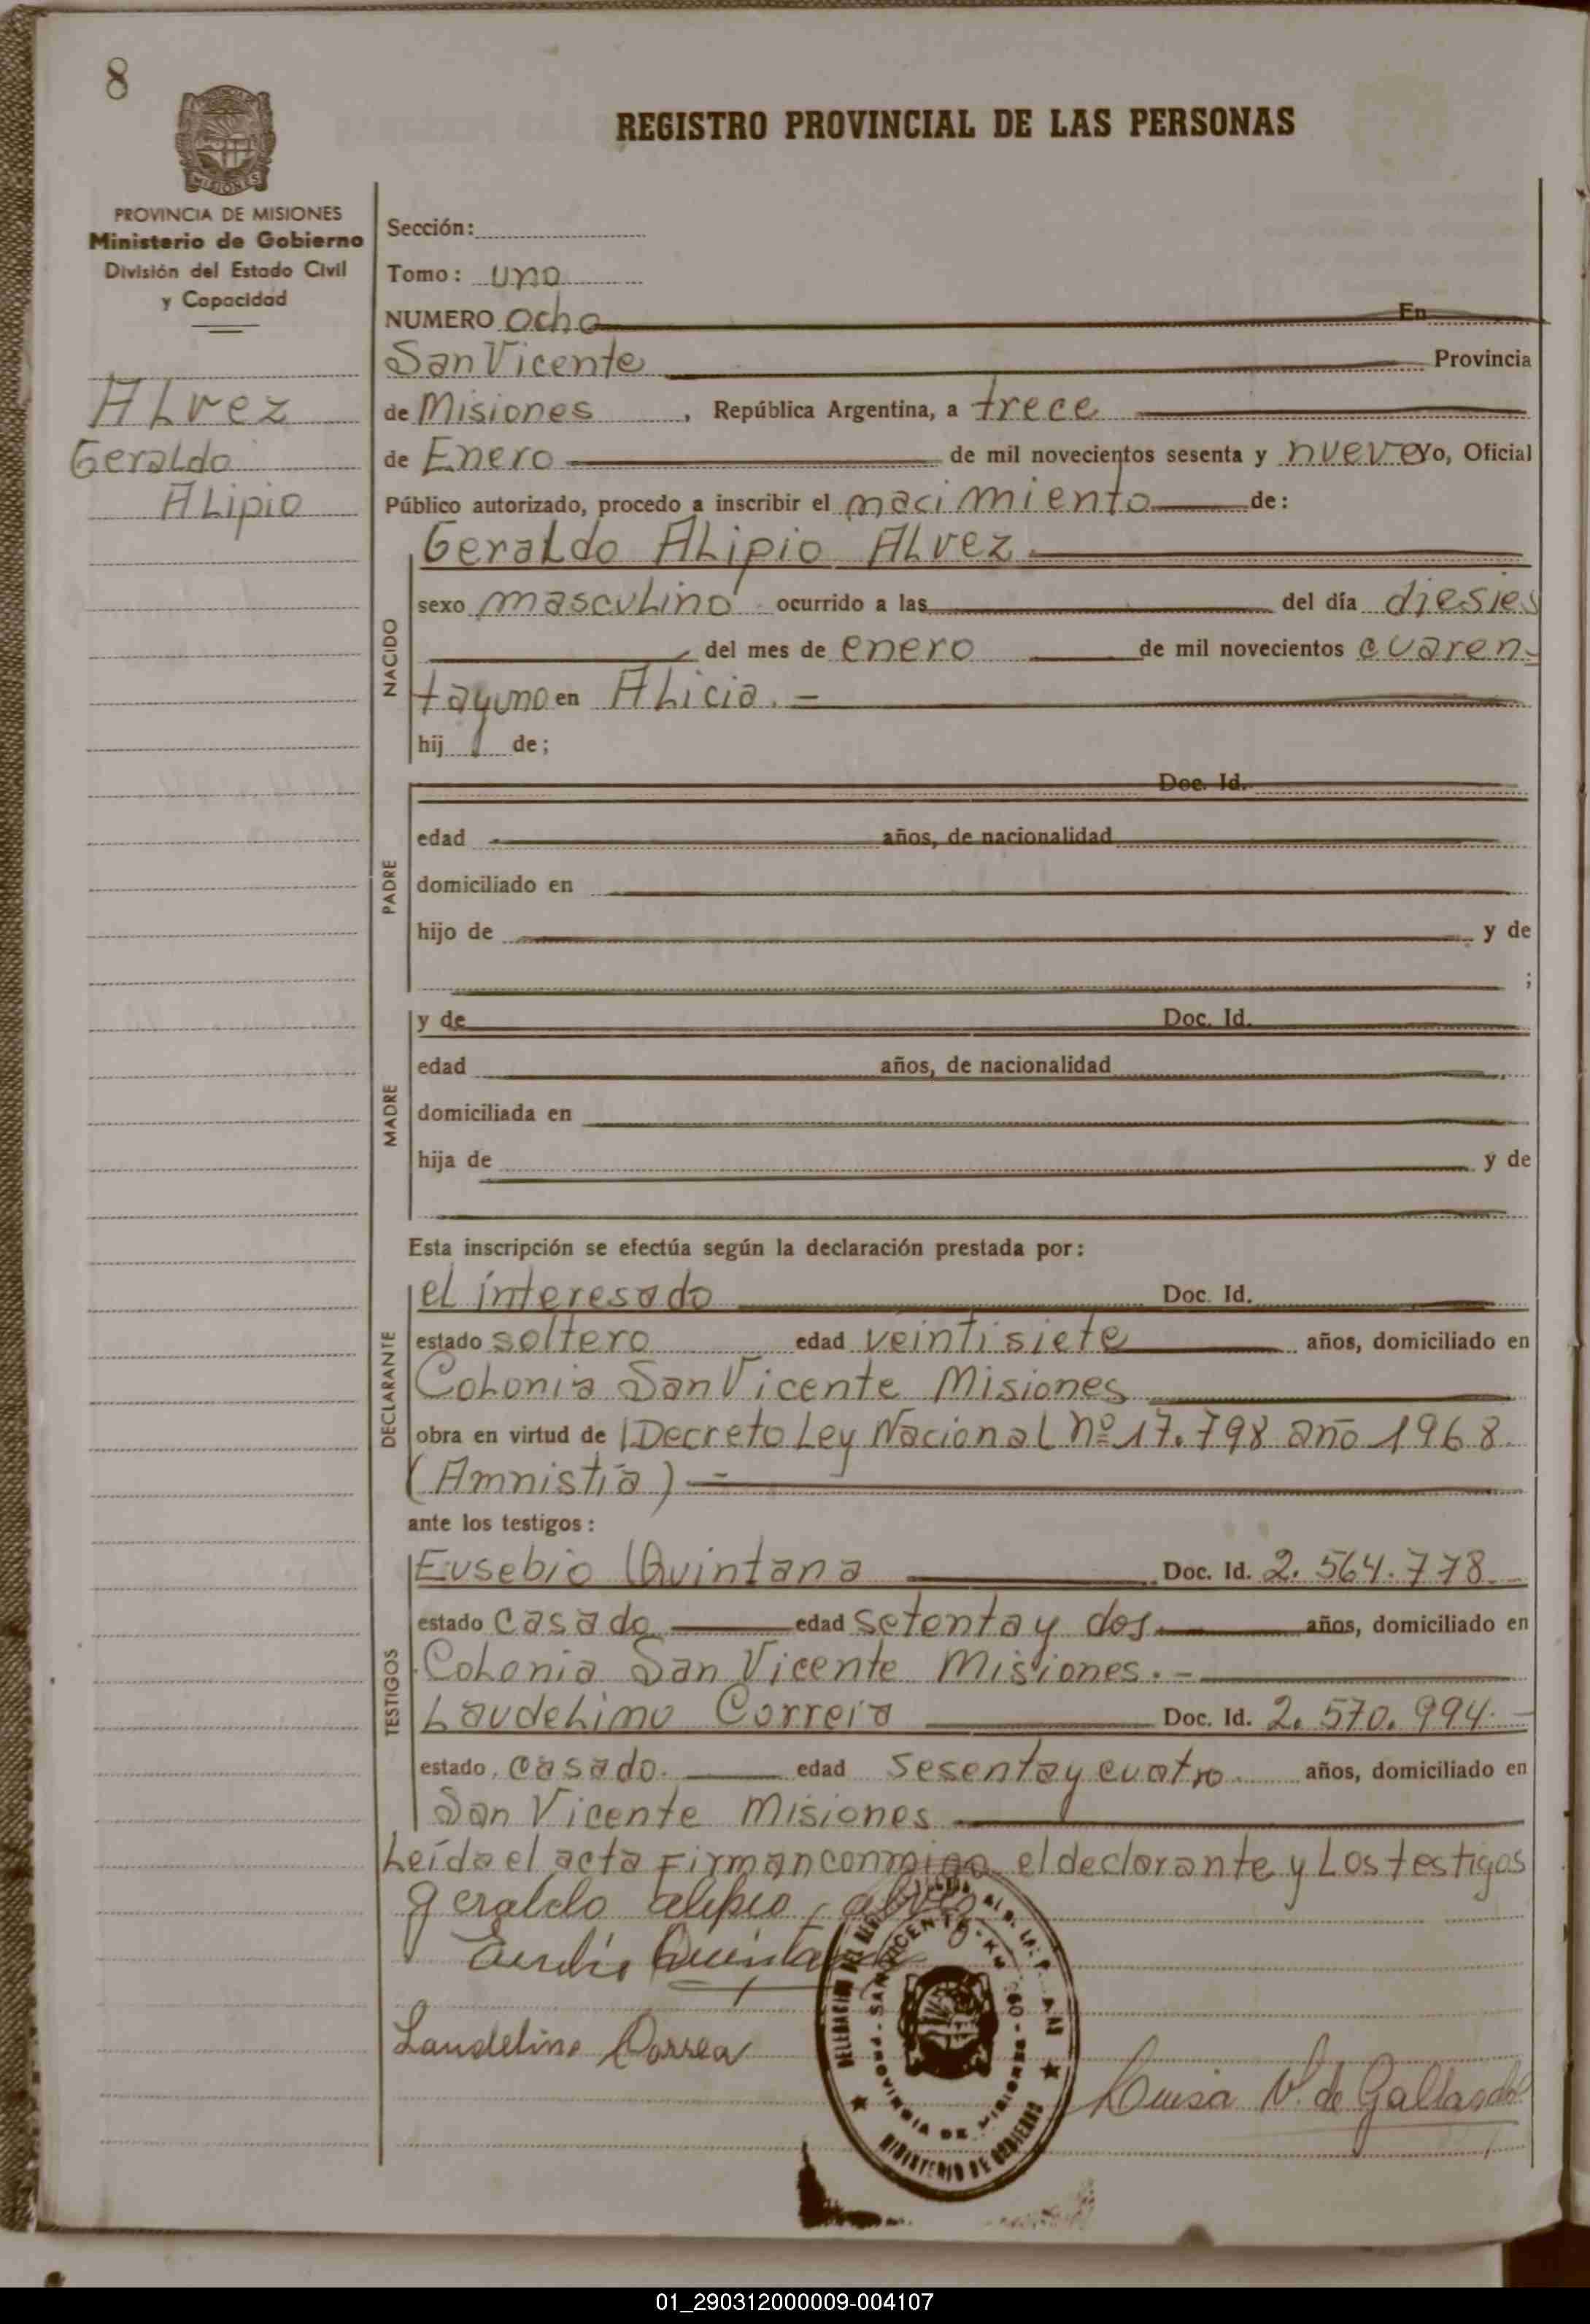 8
REGISTRO PROVINCIAL DE LAS PERSONAS
MISIONES
PROVINCIA DE MISIONES
Ministerio de Gobierno
División del Estado Civil
y Capacidad
ALvez
Geraldo
ALipio
Sección:
Tomo: uno
NUMERO Ocho En
San Vicente Provincia
de Misiones, República Argentina, a trece
de Enero de mil novecientos sesenta y nueve yo, Oficial
Público autorizado, procedo a inscribir el nacimiento de:
NACIDO
GeraLdo ALipio ALvez
sexo mascuLino ocurrido a las del día diesies
del mes de enero de mil novecientos cuaren-
tayuno en ALicia. -
hij de;
PADRE
Doc. Id.
edad años, de nacionalidad
domiciliado en
hijo de y de
;
MADRE
y de Doc. Id.
edad años, de nacionalidad
domiciliada en
hija de y de
Esta inscripción se efectúa según la declaración prestada por:
DECLARANTE
eL interesado Doc. Id.
estado soltero edad veintisiete años, domiciliado en
CoLonia San Vicente Misiones
obra en virtud de Decreto Ley Nacional nº 17.798 año 1968
(Amnistía) -
ante los testigos:
TESTIGOS
Eusebio Quintana Doc. Id. 2.564.778
estado casado edad setenta y dos años, domiciliado en
CoLonia San Vicente Misiones. -
LaudeLino Correia Doc. Id. 2.570.994. -
estado casado. edad sesenta y cuatro años, domiciliado en
San Vicente Misiones
Leída el acta Firman conmigo el declarante y Los testigos
geraldo alipio alves
Quintana
Laudelino Correa
Luisa V. de Gallardo
SAN VICENTE
PROVINCIA DE MISIONES
MINISTERIO DE GOBIERNO
01_290312000009-004107